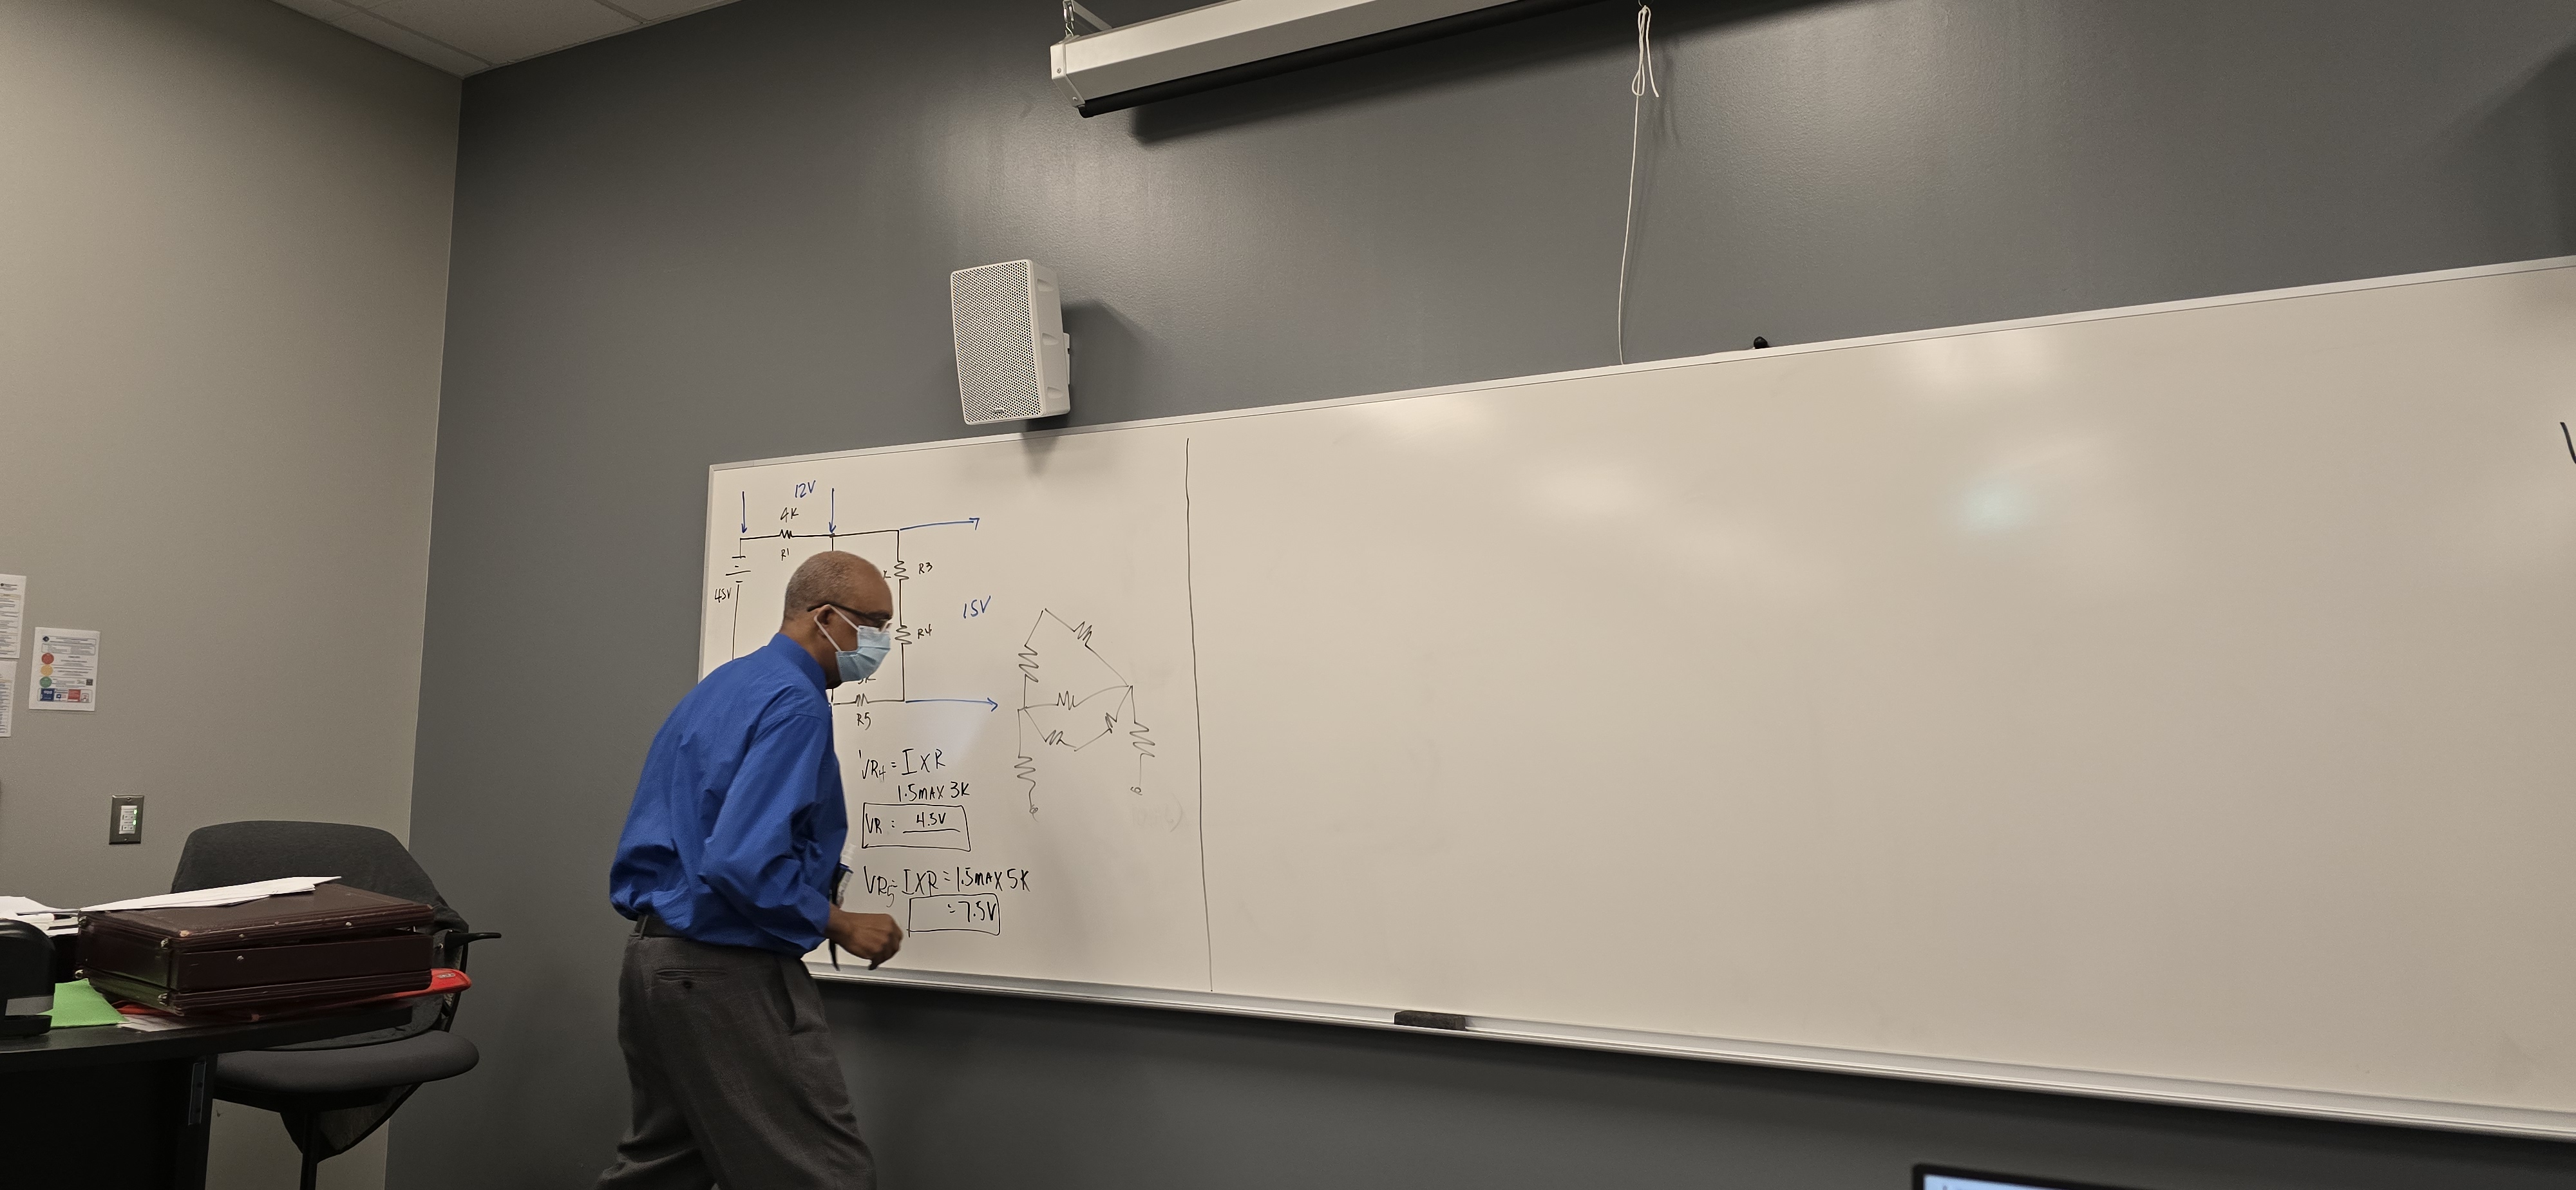 12V
4K
R1
45V
R3
R4
15V
R5
VR4 = I X R
1.5mA X 3K
VR = 4.5V
VR5 = I X R = 1.5mA X 5K
= 7.5V